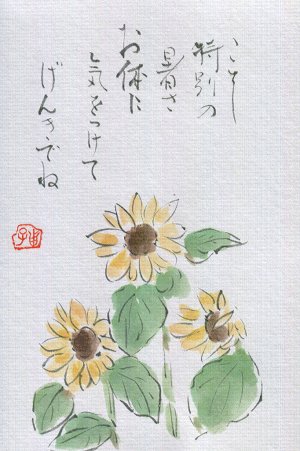 特別の
暑さ
お体に
気をつけて
げんきでね